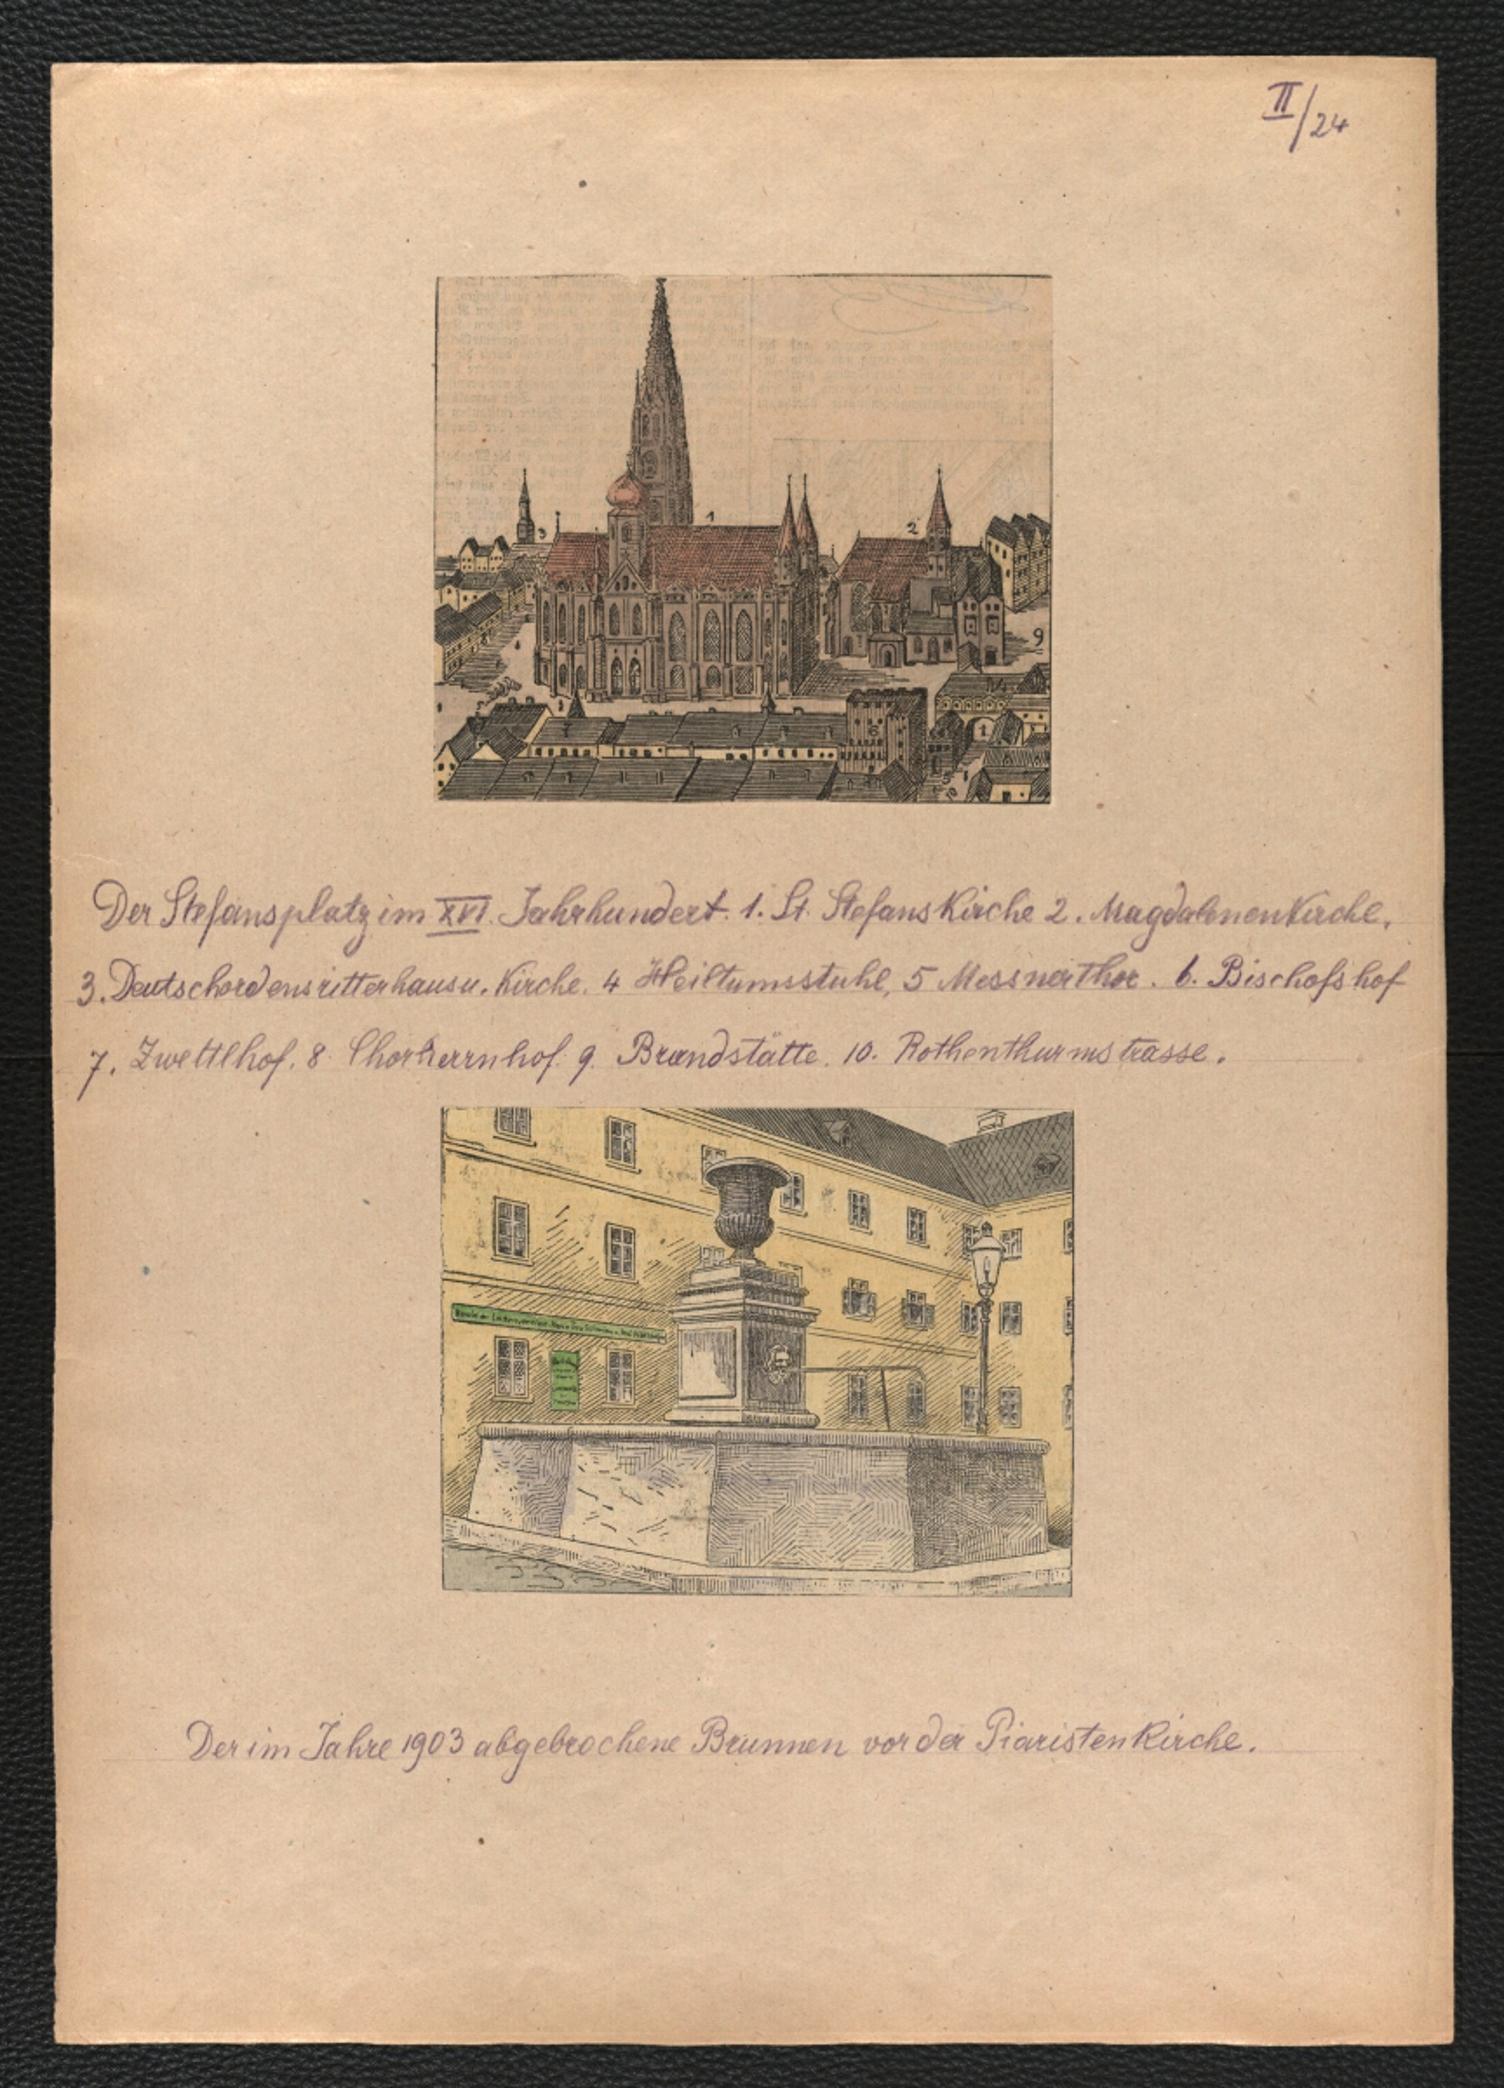 II/24
3
1
2
9
14
7
6
1
8
5
10
Der Stefansplatz im XVI. Jahrhundert. 1. St. Stefanskirche 2. Magdalenenkirche.
3. Deutschordensritterhaus u. Kirche. 4 Heiltumsstuhl, 5 Messnerthor. 6. Bischofshof
7. Zwettlhof. 8 Chorherrnhof. 9. Brandstätte. 10. Rothenthurmstrasse.
Der im Jahre 1903 abgebrochene Brunnen vor der Piaristenkirche.